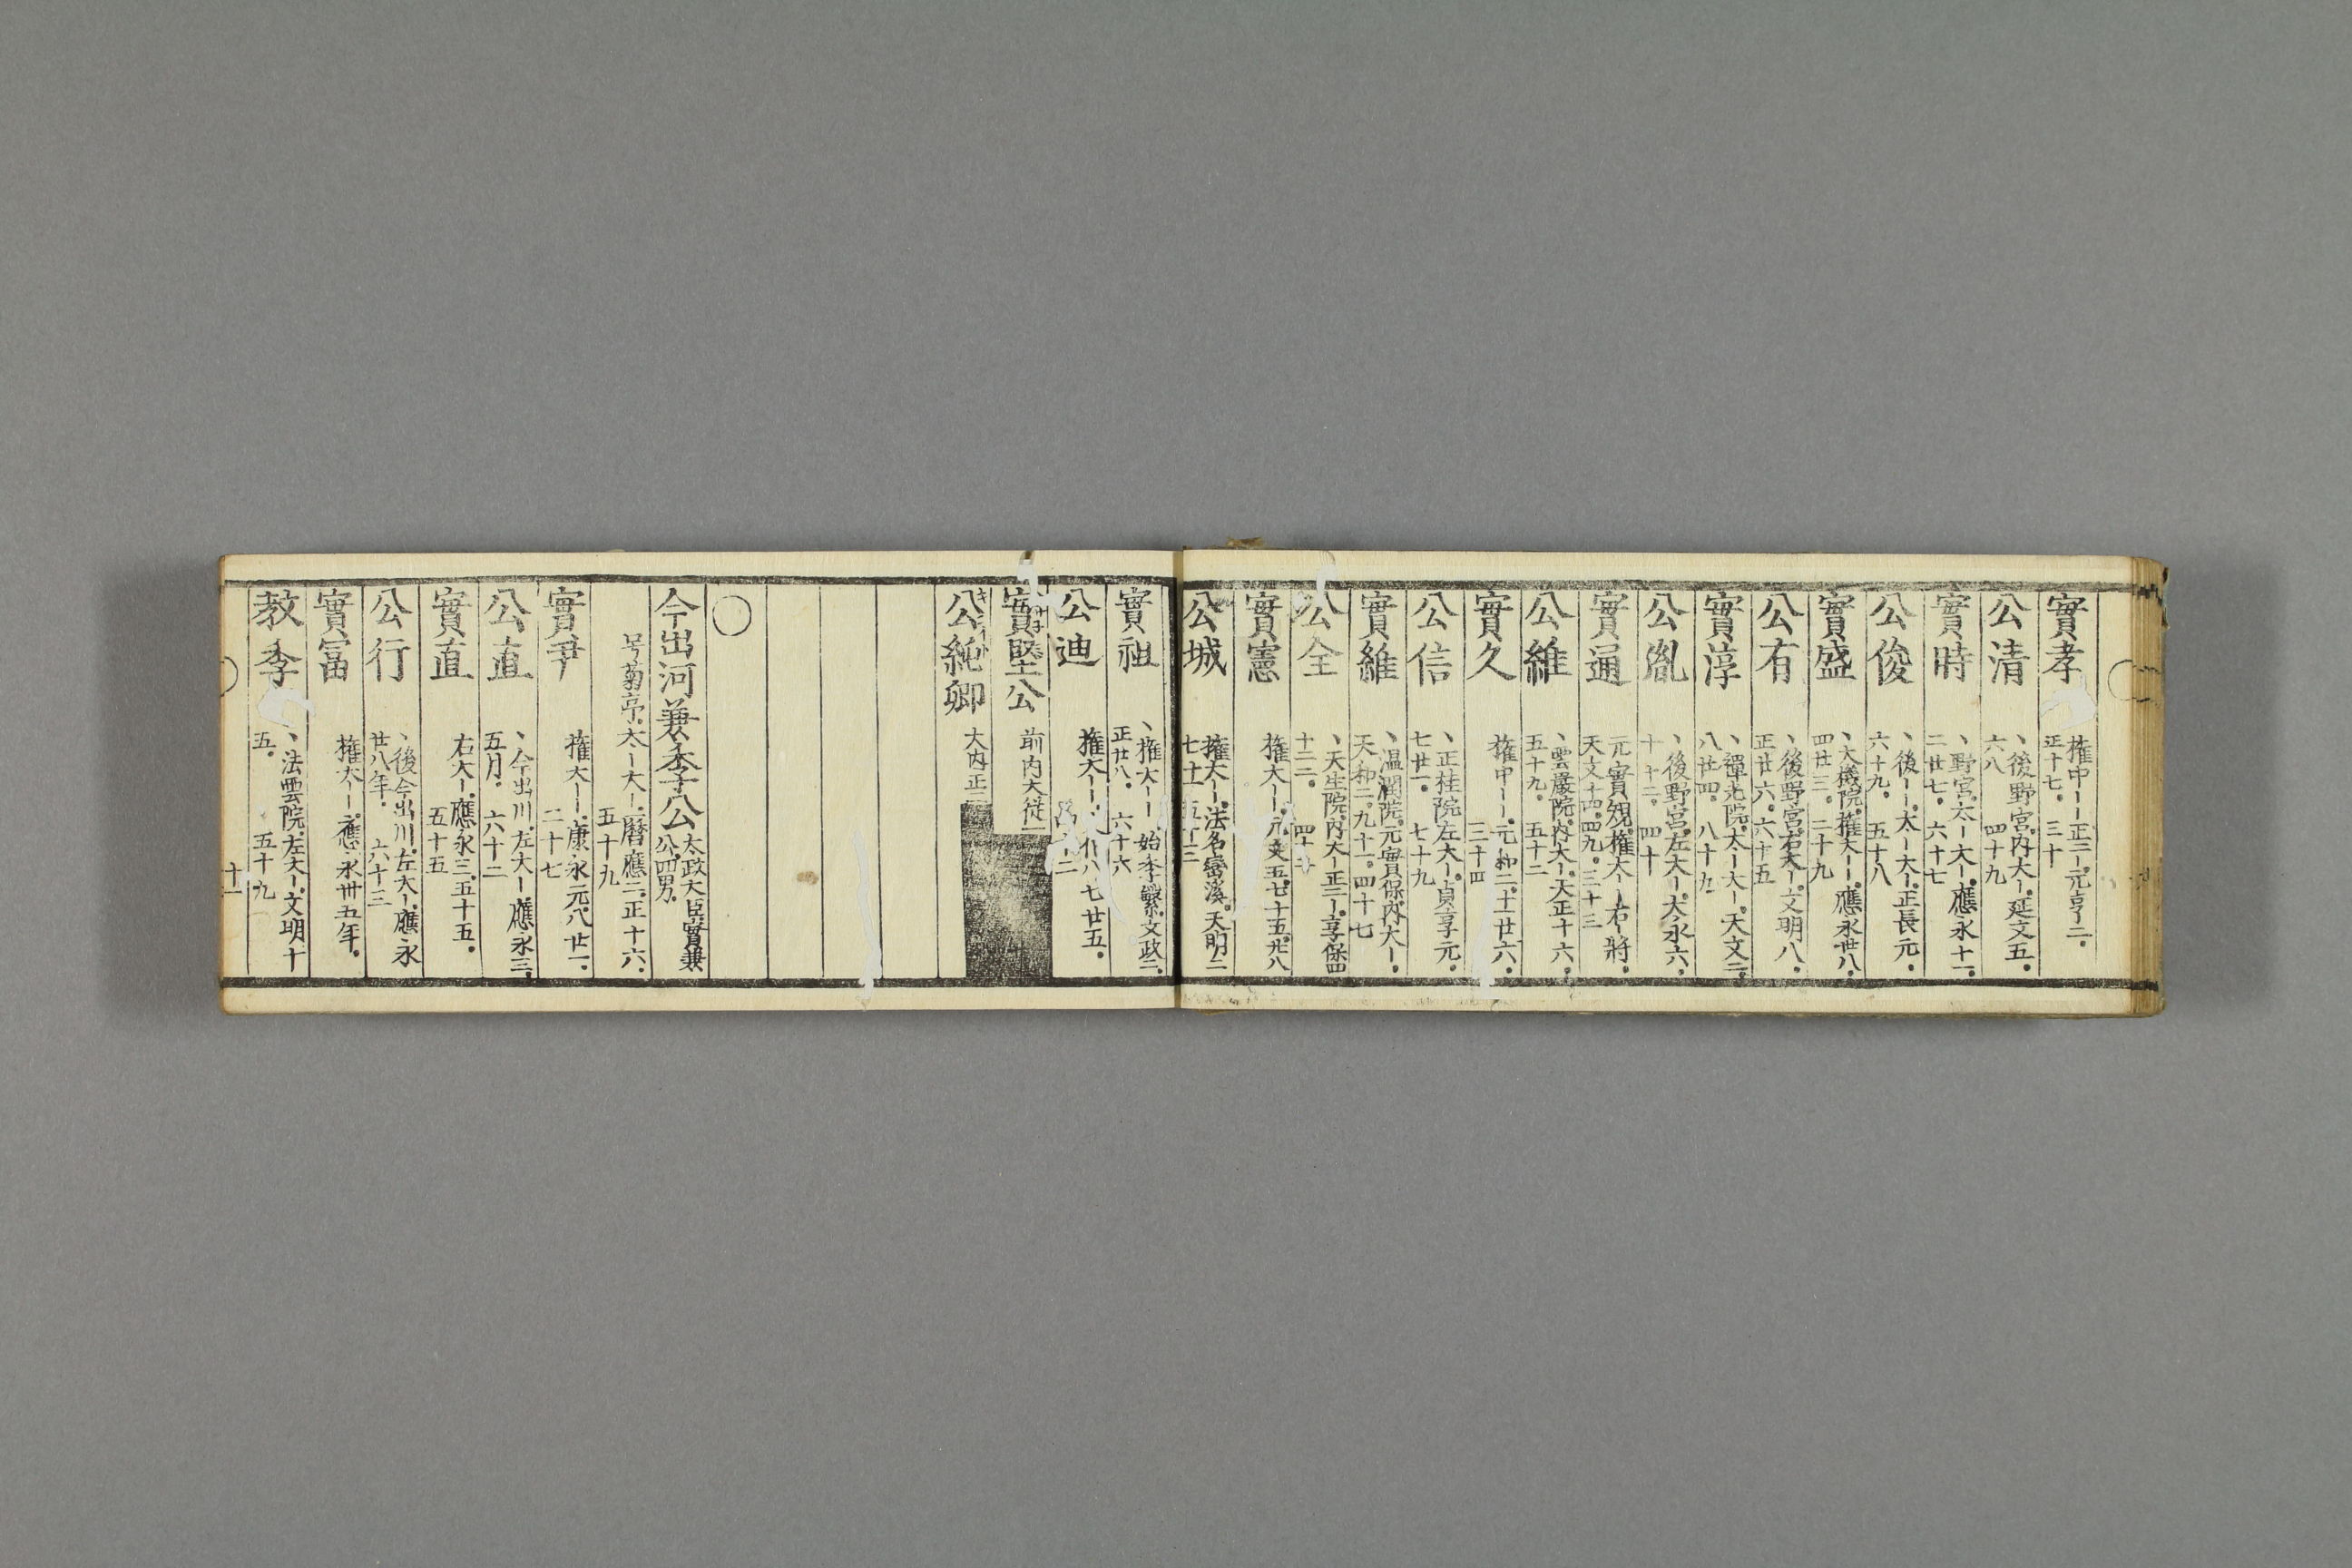 實孝 権中〡正二〡元亨二。
正十七。 三十
公清 、後野宮。内大〡。延文五。
六八 四十九
實時 、野宮。太〡大〡。應永十一。
二廿七。 六十七
公俊 、後〡〡。太〡大〡。正長元。
六十九。 五十八
實盛 、大儀院。権大〡。應永卅八。
四廿三。 二十九
公有 、後野宮。右大〡。文明八。
正廿六。 六十五
實淳 、禪光院。太〡大〡。天文二。
八廿四。 八十九
公胤 、後野宮。左大〡。大永六。
十十二。 四十
實通 元實規。権大〡〡右〡將。
天文十四。四九。三十三
公維 、雲嚴院。内大〡。天正十六。
五十九。 五十二
實久 権中〡〡元和二。十一廿六。
三十四
公信 、正桂院。左大〡。貞享元。
七廿一。 七十九
實維 、温潤院。元實保。内大〡。
天和二。九十一。四十七
公全 、天生院。内大〡。正二〡。享保四
十二二。
實憲 権大〡〡元文五。七十五
公城 権大〡。法名密溪。天明二
七十一 五十三
實祖 、権大〡〡始季繁。文政二。
正廿八。 六十六
公迪 権大〡
八七廿五。
實堅公 前内大従一
公純卿 大内正二
〇
今出河兼季公 太政大臣實兼
公四男。
号菊亭。太〡大〡。暦應二。正十六。
五十九
實尹 権大〡〡康永元八廿一。
二十七
公直 、今出川。左大〡應永三。
五月。 六十二
實直 右大〡。應永三。五十五。
五十五
公行 、後今出川。左大〡。應永
廿八年。 六十三
實富 権大〡〡應永卅五年。
教季 、法雲院。左大〡。文明十
五。 五十九
十一